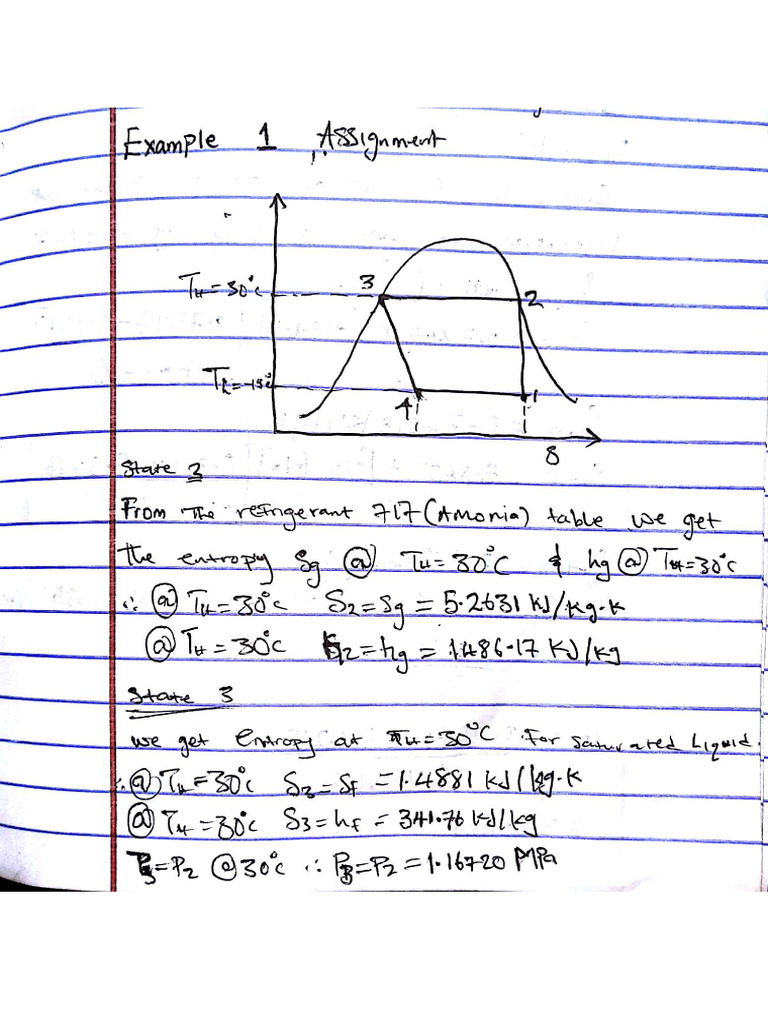 Example 1 Assignment
T_H = 30°C
3
2
T_L = -15°C
4
1
S
State 2
From The refrigerant 717 (Amonia) table we get
the entropy Sg @ T_H = 30°C & hg @ T_H = 30°C
∴ @ T_H = 30°C S2 = Sg = 5.2631 KJ/kg.k
@ T_H = 30°C h2 = hg = 1486.17 KJ/kg
State 3
we get Entropy at T_H = 30°C For saturated Liquid.
∴ @ T_H = 30°C S3 = Sf = 1.4881 KJ/kg.k
@ T_H = 30°C S3 = hf = 341.76 KJ/kg
P3 = P2 @ 30°C ∴ P3 = P2 = 1.16720 MPa